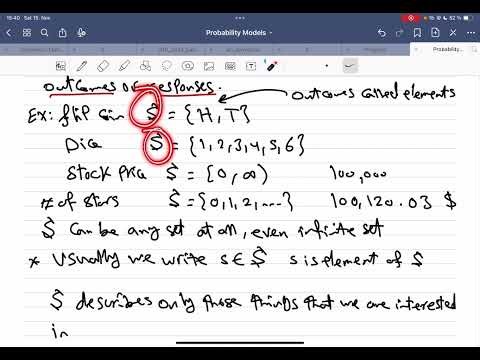 15:40 Sat 15. Nov
52 %
Probability Models
Probability
outcomes or responses.
Ex: flip coin Ŝ = {H, T} outcomes called elements
Dice Ŝ = {1, 2, 3, 4, 5, 6}
Stock Price Ŝ = [0, ∞) 100,000
# of stars Ŝ = {0, 1, 2, ....} 100,120.03 $
Ŝ can be any set at all, even infinite set
* Usually we write s ∈ Ŝ s is element of Ŝ
Ŝ describes only those things that we are interested
in